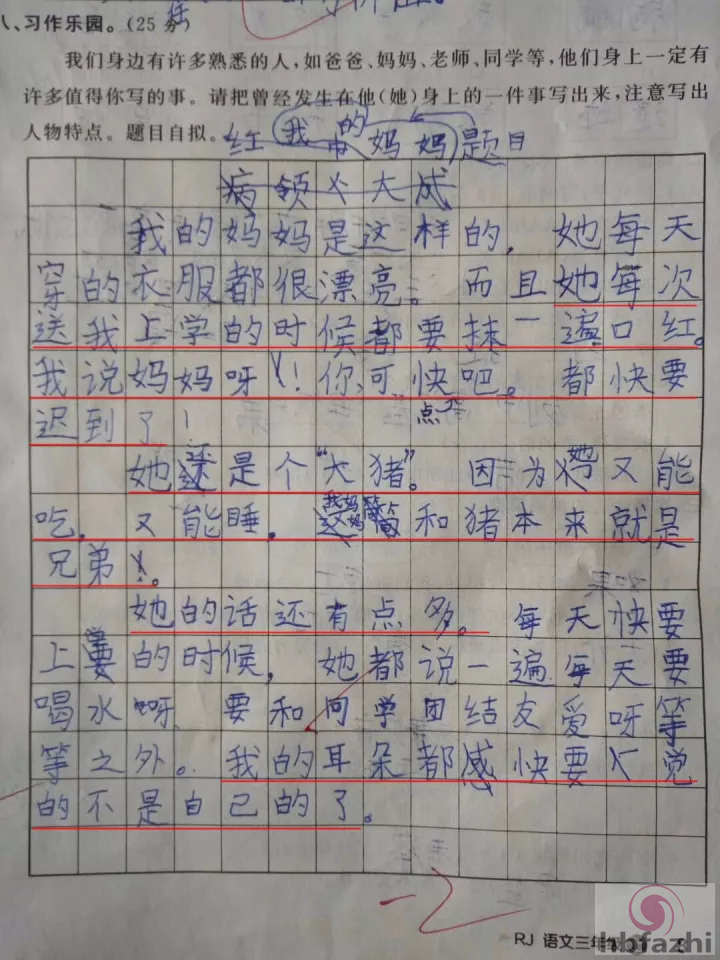 八、习作乐园。(25分)
我们身边有许多熟悉的人,如爸爸、妈妈、老师、同学等,他们身上一定有
许多值得你写的事。请把曾经发生在他(她)身上的一件事写出来,注意写出
人物特点。题目自拟。
我的妈妈 题目
我的妈妈是这样的,她每天
穿的衣服都很漂亮。而且她每次
送我上学的时候都要抹一遍口红。
我说妈妈呀!你可快点吧。都快要
迟到了!
她还是个“大猪”。因为她又能
吃,又能睡,我妈妈简和猪本来就是
兄弟。
她的话还有点多。每天快要
上学的时候,她都说一遍每天要
喝水呀,要和同学团结友爱呀等
等之外。我的耳朵都感快要觉
的不是自己的了。
-2
RJ 语文三年级
hbfazhi